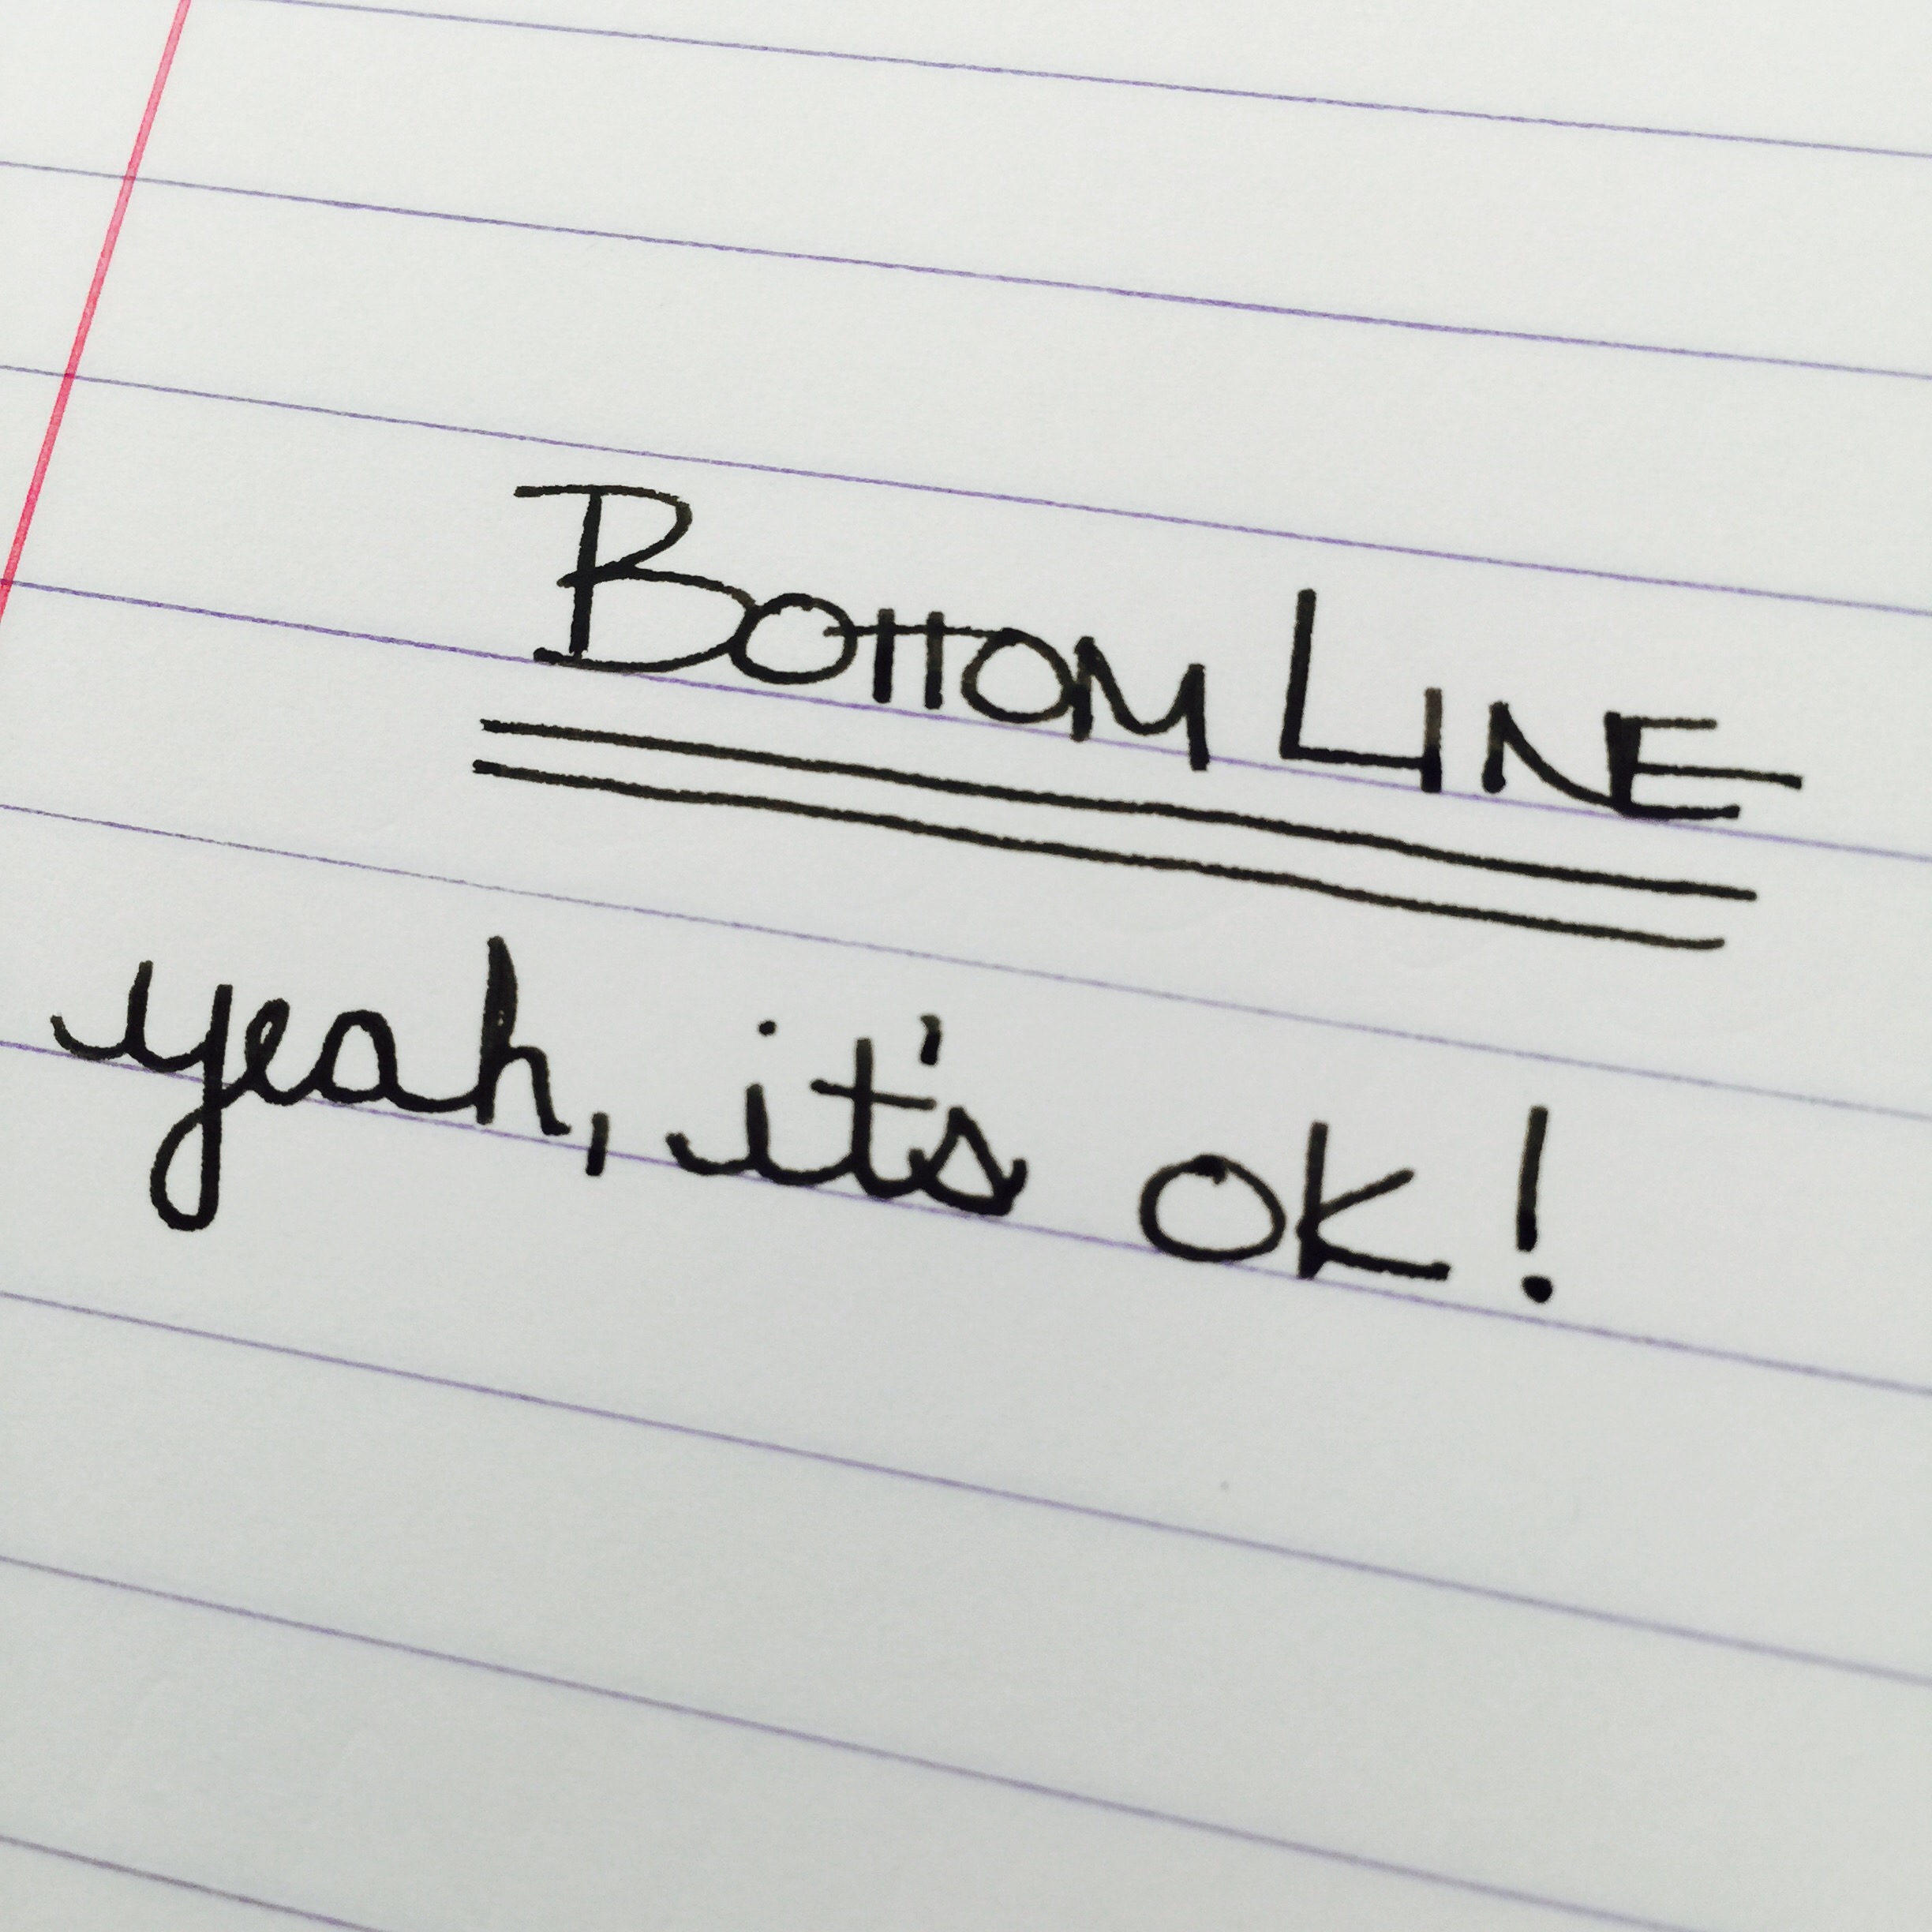 BOTTOM LINE
yeah, it's OK!